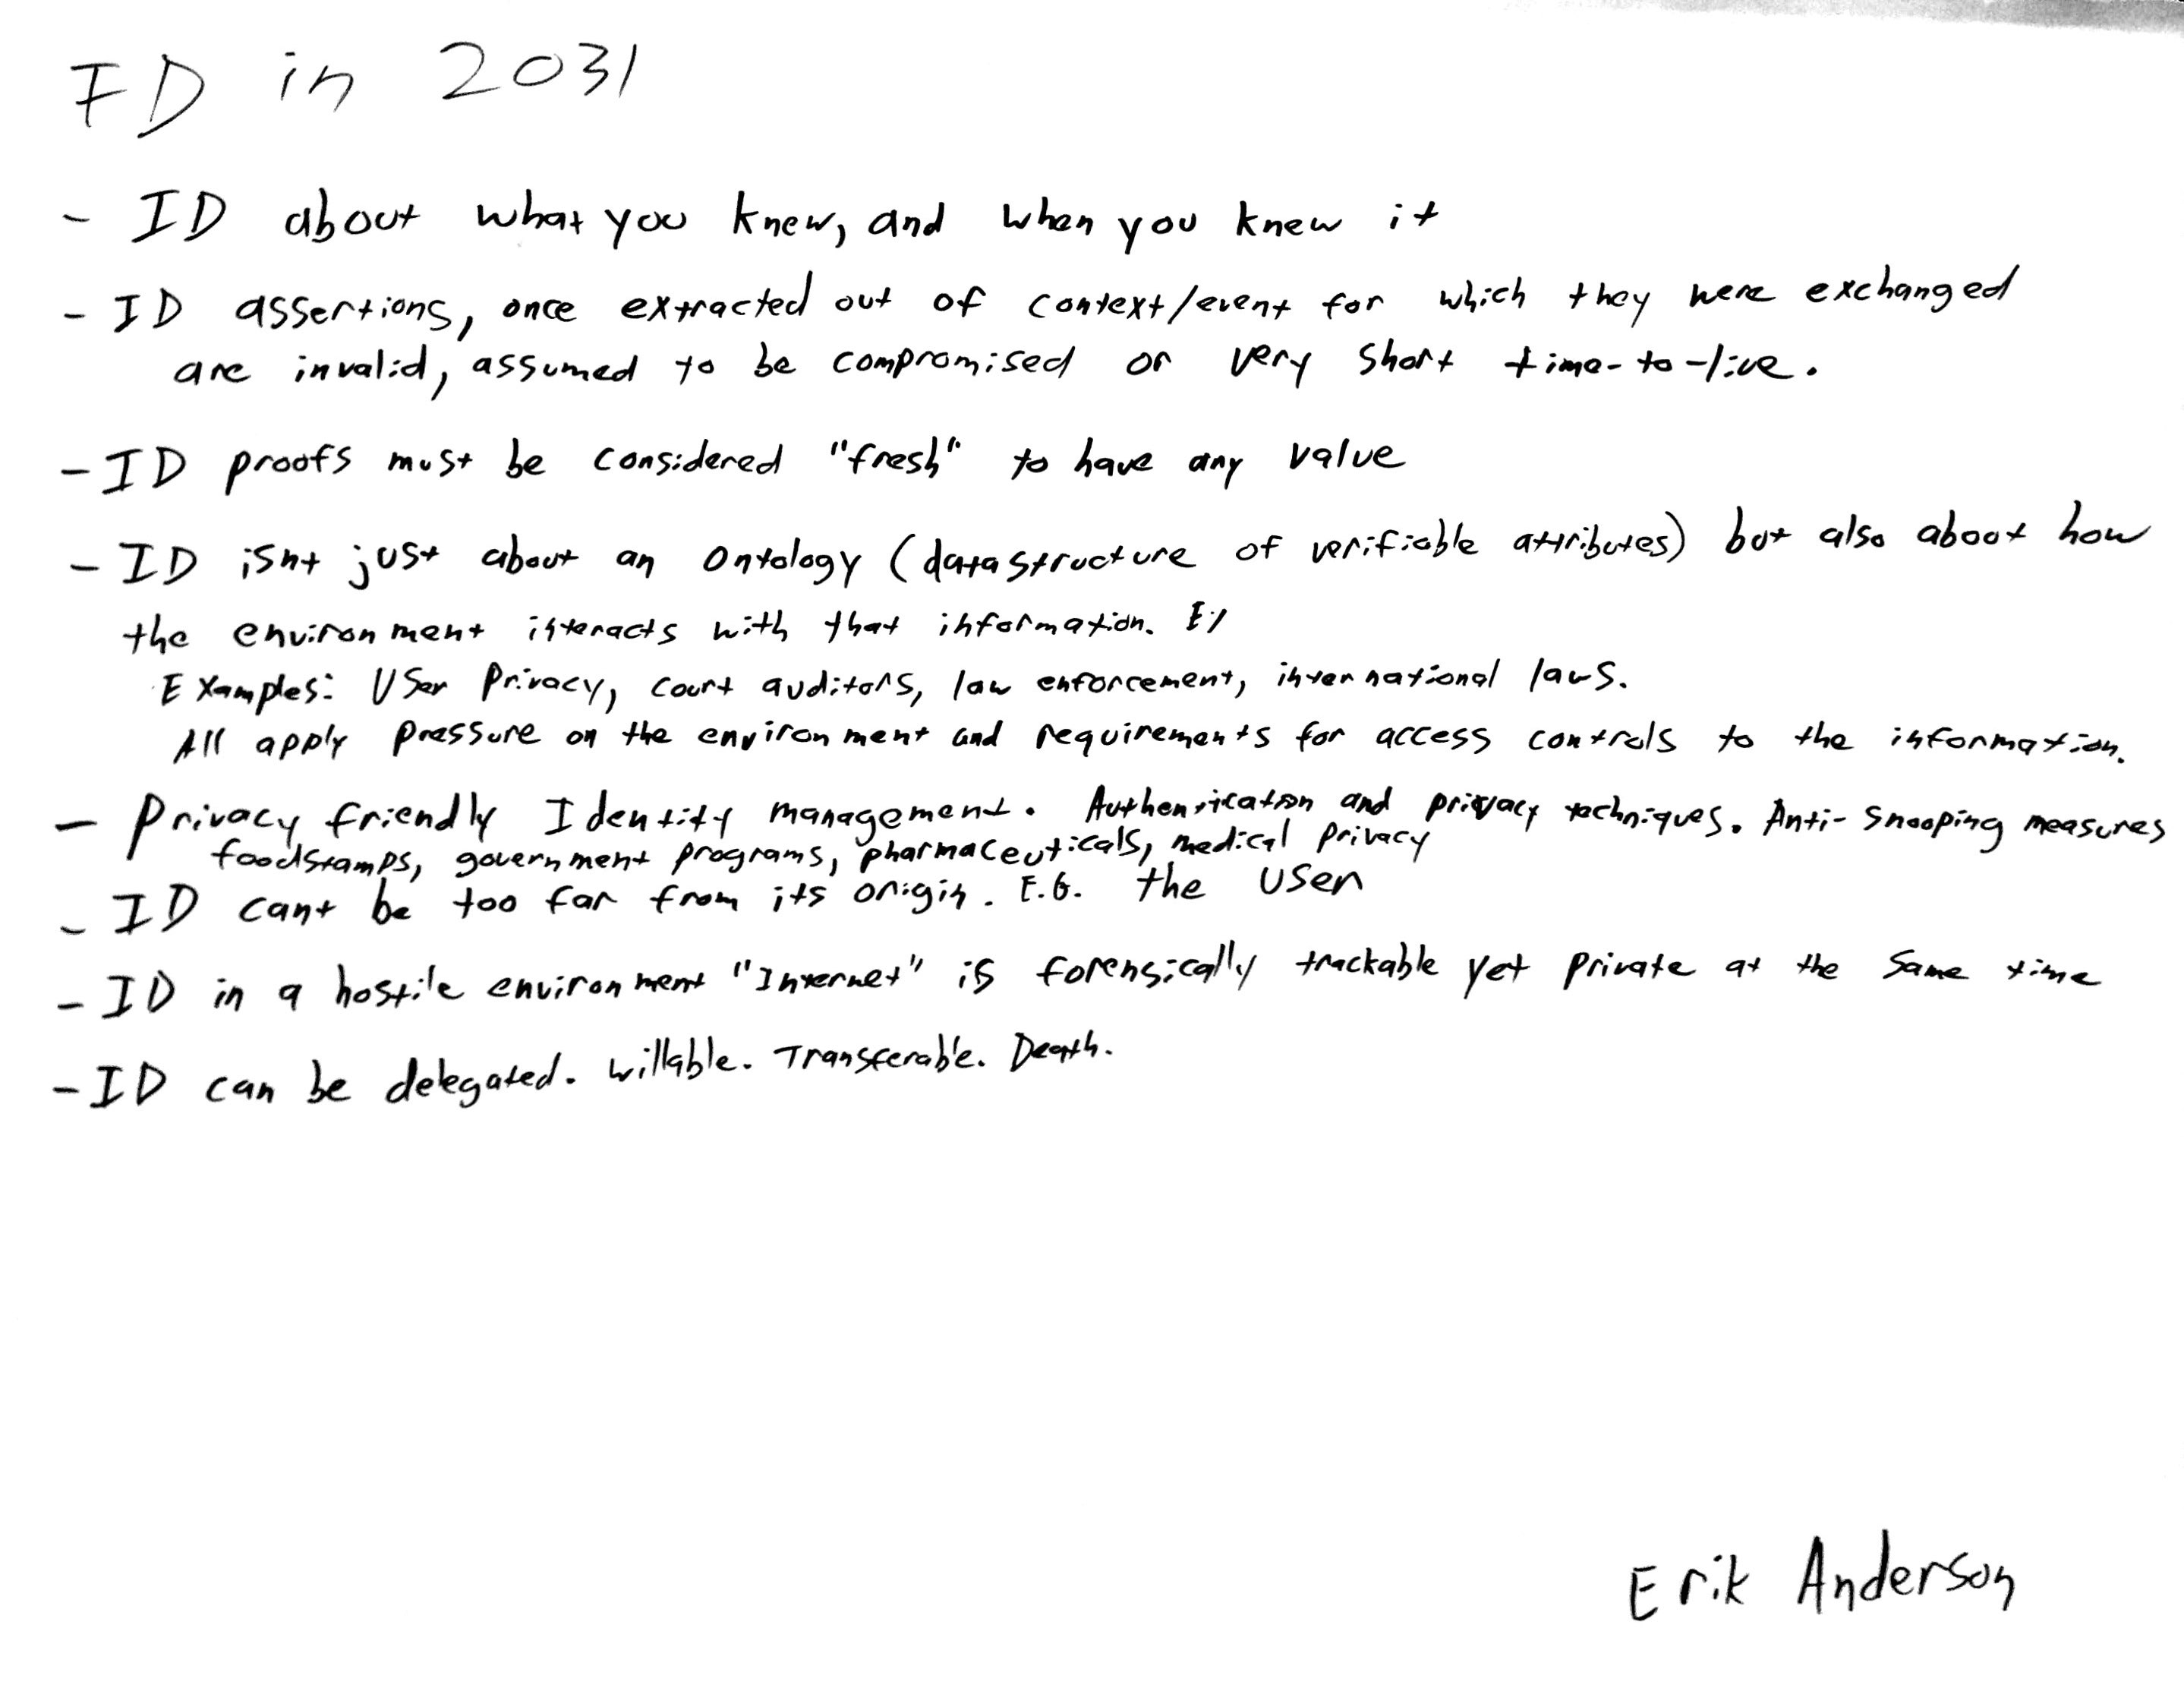 ID in 2031
- ID about what you knew, and when you knew it
- ID assertions, once extracted out of context/event for which they were exchanged
are invalid, assumed to be compromised or very short time-to-live.
- ID proofs must be considered "fresh" to have any value
- ID isnt just about an ontology (datastructure of verifiable attributes) but also about how
the environment interacts with that information. Ex
Examples: User Privacy, court auditors, law enforcement, international laws.
All apply pressure on the environment and requirements for access controls to the information.
- Privacy friendly Identity management. Authentication and privacy techniques. Anti-snooping measures
foodstamps, government programs, pharmaceuticals, medical privacy
- ID cant be too far from its origin. E.G. the user
- ID in a hostile environment "Internet" is forensically trackable yet private at the same time
- ID can be delegated. Willable. Transferable. Death.
Erik Anderson